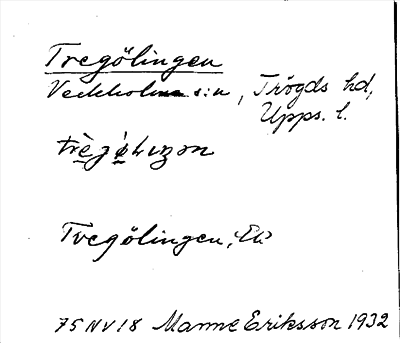 Tregölingen
Veckholms s:n, Trögds hd,
Upps. l.
Tregölingen, Ek
75 NV 18 Manne Eriksson 1932